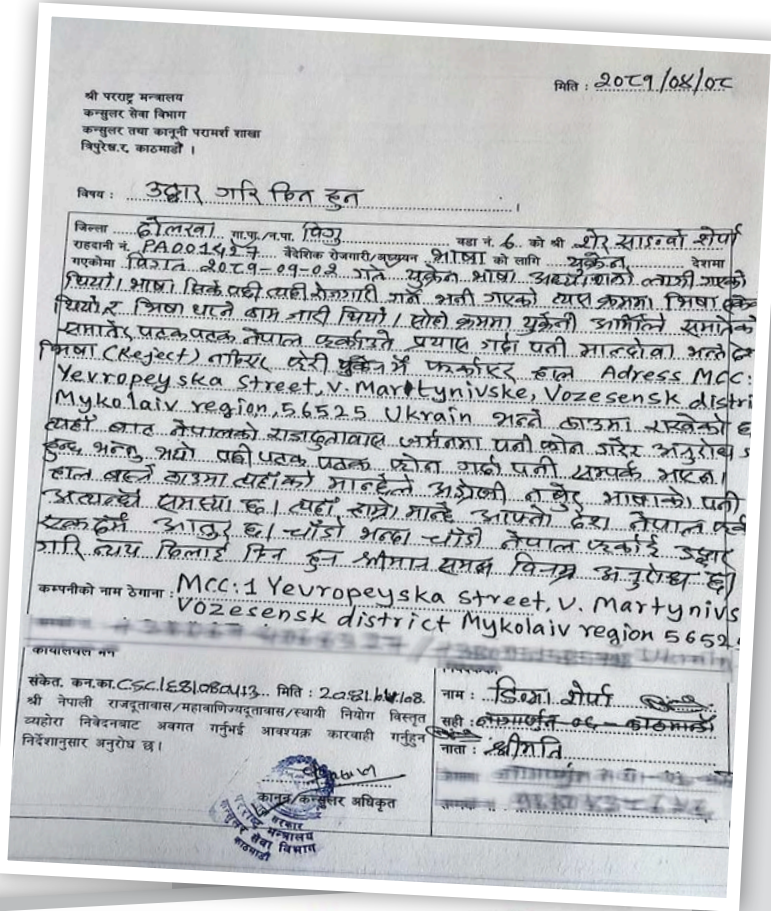 मिति : २०८१/०४/०८
श्री परराष्ट्र मन्त्रालय
कन्सुलर सेवा विभाग
कन्सुलर तथा कानूनी परामर्श शाखा
त्रिपुरेश्वर, काठमाडौं ।
विषय : उद्धार गरि दिन हुन ।
जिल्ला दोलखा गा.पा./न.पा. विगु वडा नं. 6. को श्री शेर साङवो शेर्पा
राहदानी नं. वैदेशिक रोजगारी/अध्ययन भाषा को लागि युक्रेन देशमा
गएकोमा विगत गते युक्रेन भाषा लागी गएको
थियो। भाषा सिके पछी त्यही रोजगारी गर्ने भनी गएको त्यस क्रममा भिषा
थियो र भिषा थप्ने काम जारी थियो। सोही क्रममा युक्रेनी आर्मीले समातेको
समातेर पटकपटक नेपाल फर्काउने प्रयास गर्दा पनी माल्दोवा भन्ने
भिषा (Reject) फेरी युक्रेनमै फर्काएर हाल Adress MCC:
Yevropeyska street, v. Martynivske, Vozesensk distri
Mykolaiv region, 56525 Ukrain भन्ने ठाउमा राखेको छ
त्यहाँ बाट नेपालको राजदुतावास जर्मनमा पनी फोन गरेर अनुरोध
भन्नु भयो पछी पटक पटक फोन गर्दा पनी सम्पर्क भएन।
हाल बस्ने ठाउमा त्यहाँको मान्छेले अंग्रेजी नबुझ भाषाको पनी
अत्यन्तै समस्या छ। त्यहाँ हाम्रो मान्छे आफ्नो देश नेपाल फर्क
एकदमै आतुर छ। चाँडो भन्दा चाँडो नेपाल फर्काई उद्धार
गरि न्याय दिलाई दिन हुन श्रीमान समक्ष विनम्र अनुरोध छ।
कम्पनीको नाम ठेगाना : MCC:1 Yevropeyska street, v. Martynivs
Vozesensk district Mykolaiv region 5652
संकेत. कन.का. मिति :
श्री नेपाली राजदूतावास/महावाणिज्यदूतावास/स्थायी नियोग विस्तृत
व्यहोरा निवेदनबाट अवगत गर्नुभई आवश्यक कारवाही गर्नुहुन
निर्देशानुसार अनुरोध छ।
कानून/कन्सुलर अधिकृत
परराष्ट्र मन्त्रालय
कन्सुलर सेवा विभाग
काठमाडौं
नाम : डिल्मा शेर्पा
सही :
नाता : श्रीमति